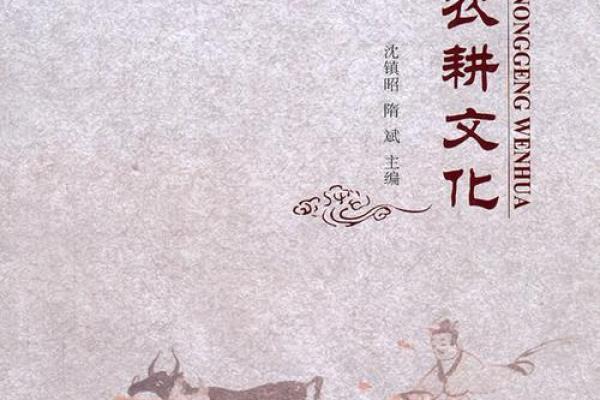 农耕文化
NONGGENG WENHUA
沈镇昭 隋 斌 主编